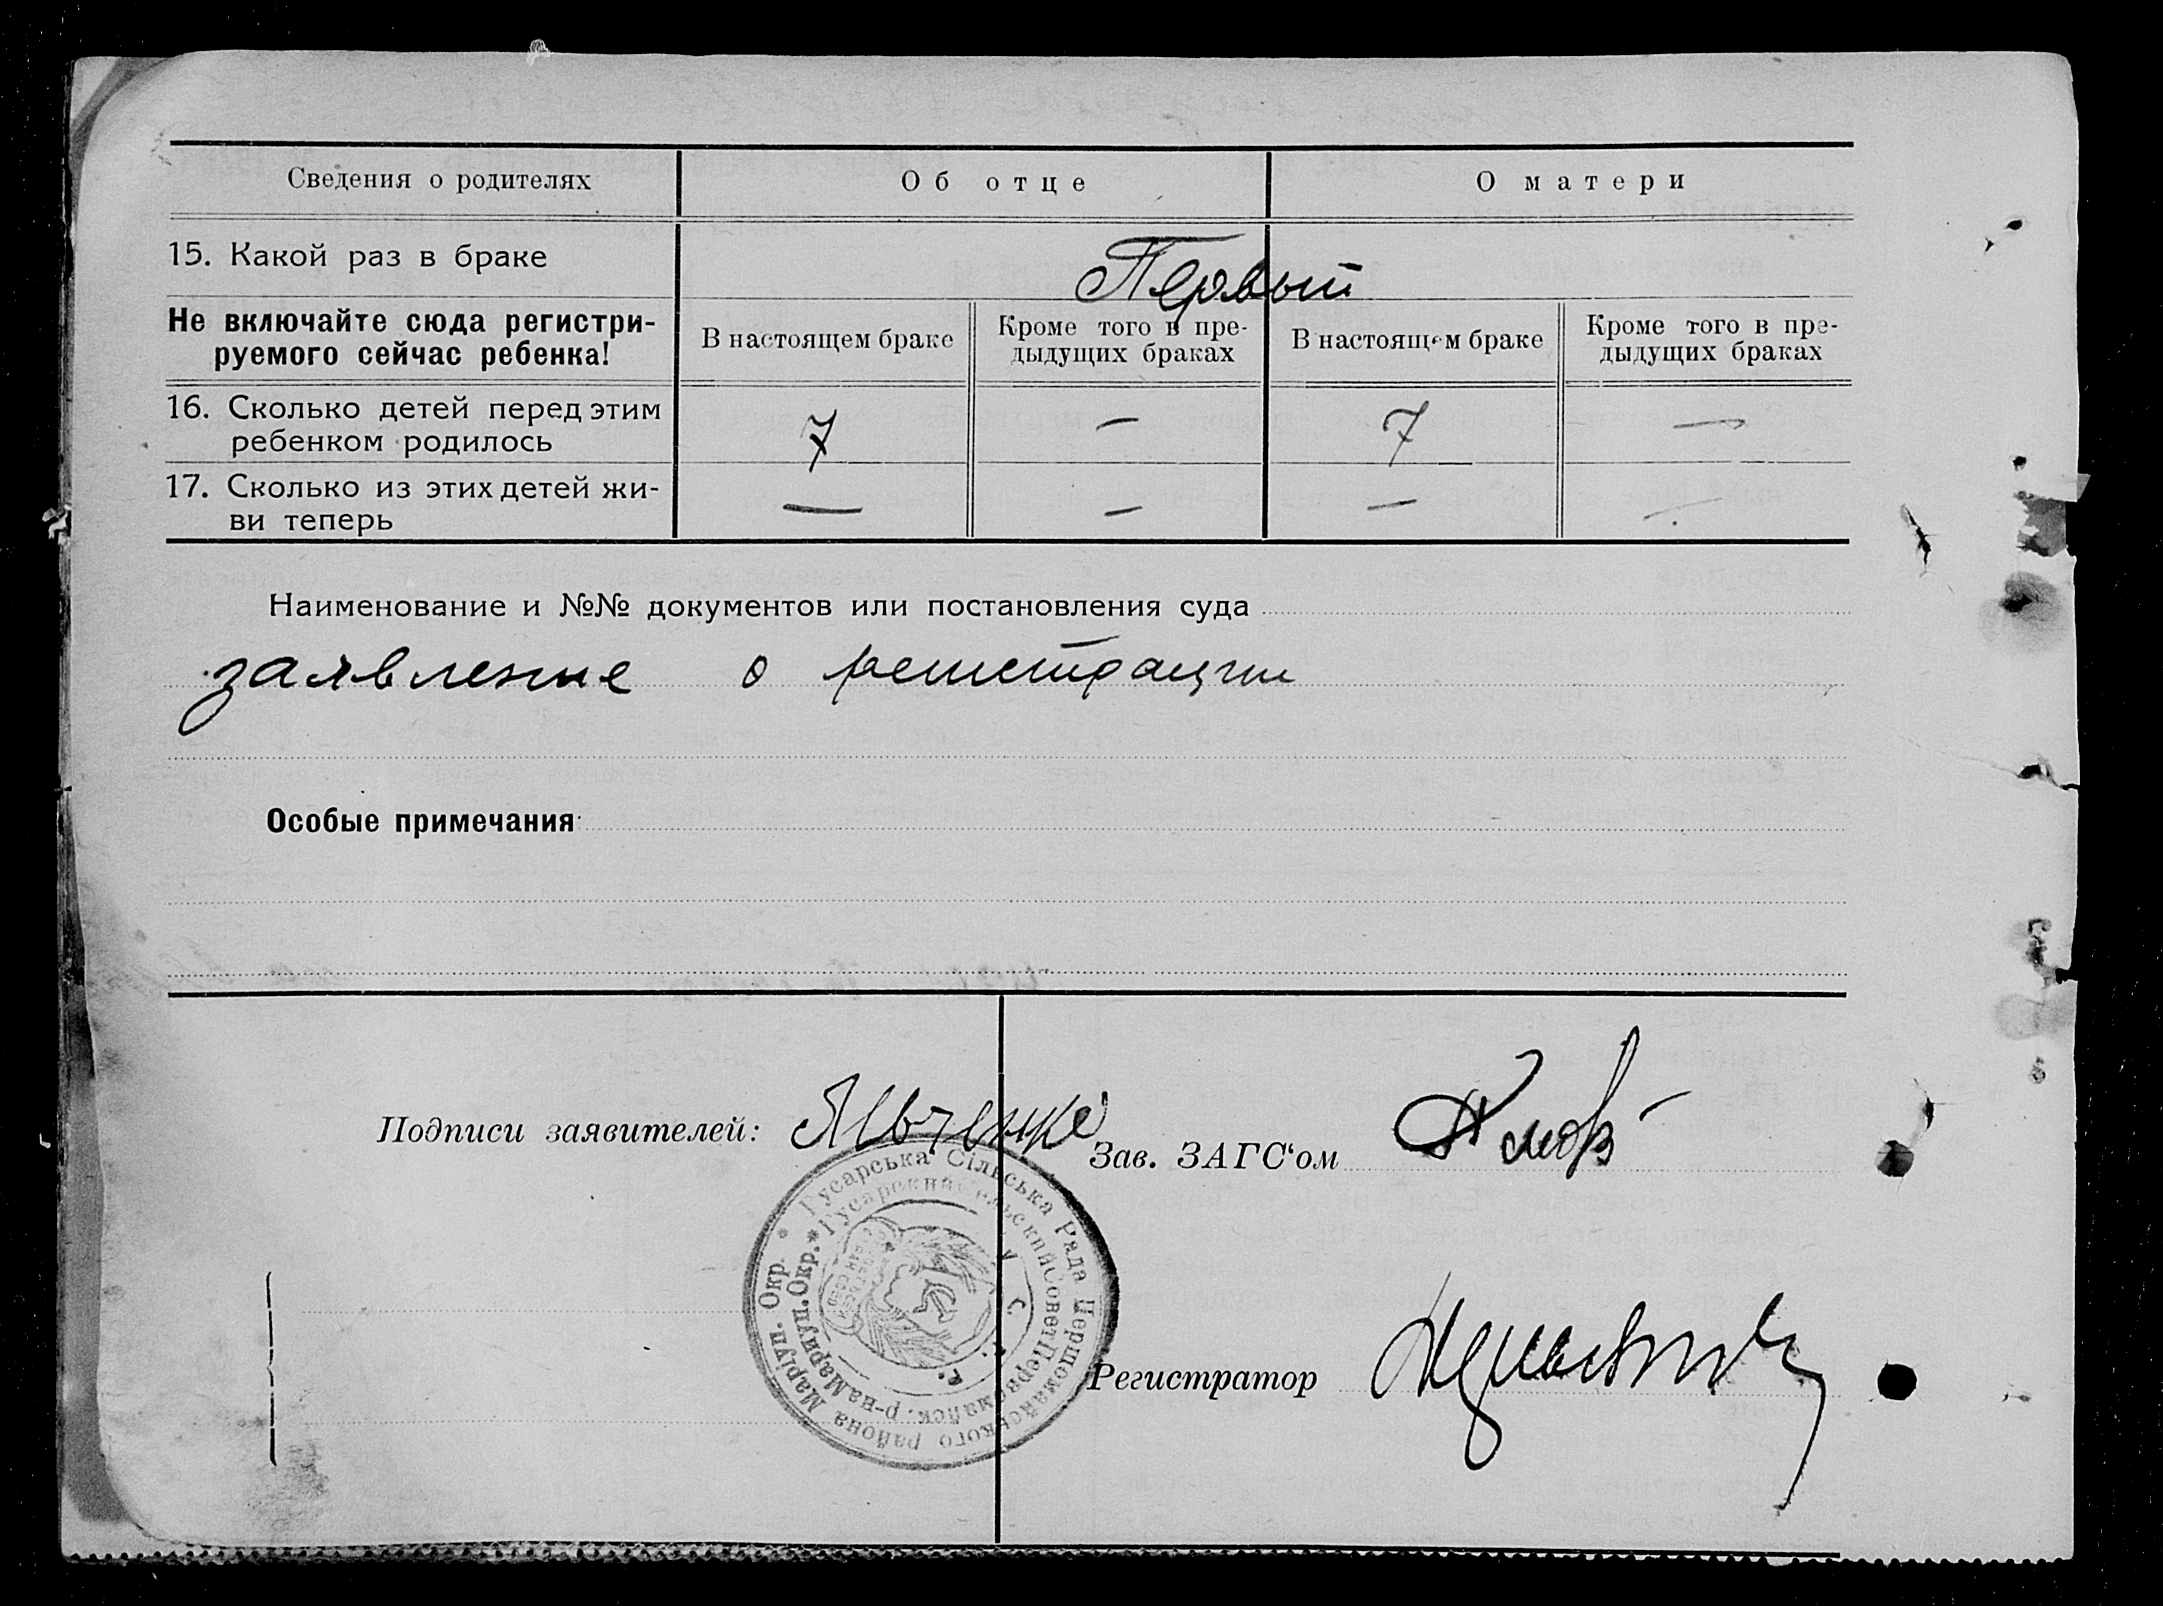 Сведения о родителях
Об отце
О матери
15. Какой раз в браке
Первый
Не включайте сюда регистри-
руемого сейчас ребенка!
В настоящем браке
Кроме того в пре-
дыдущих браках
В настоящем браке
Кроме того в пре-
дыдущих браках
16. Сколько детей перед этим
ребенком родилось
7 — 7 —
17. Сколько из этих детей жи-
ви теперь
— — — —
Наименование и №№ документов или постановления суда
заявление о регистрации
Особые примечания
Подписи заявителей:
Зав. ЗАГС‘ом
Гусарська Сільська Рада Першомайського района Маріуп. Окр. *
Гусарский Сельский Совет Первомайск. р-на Мариуп. Окр. *
У. С. С. Р.
Регистратор